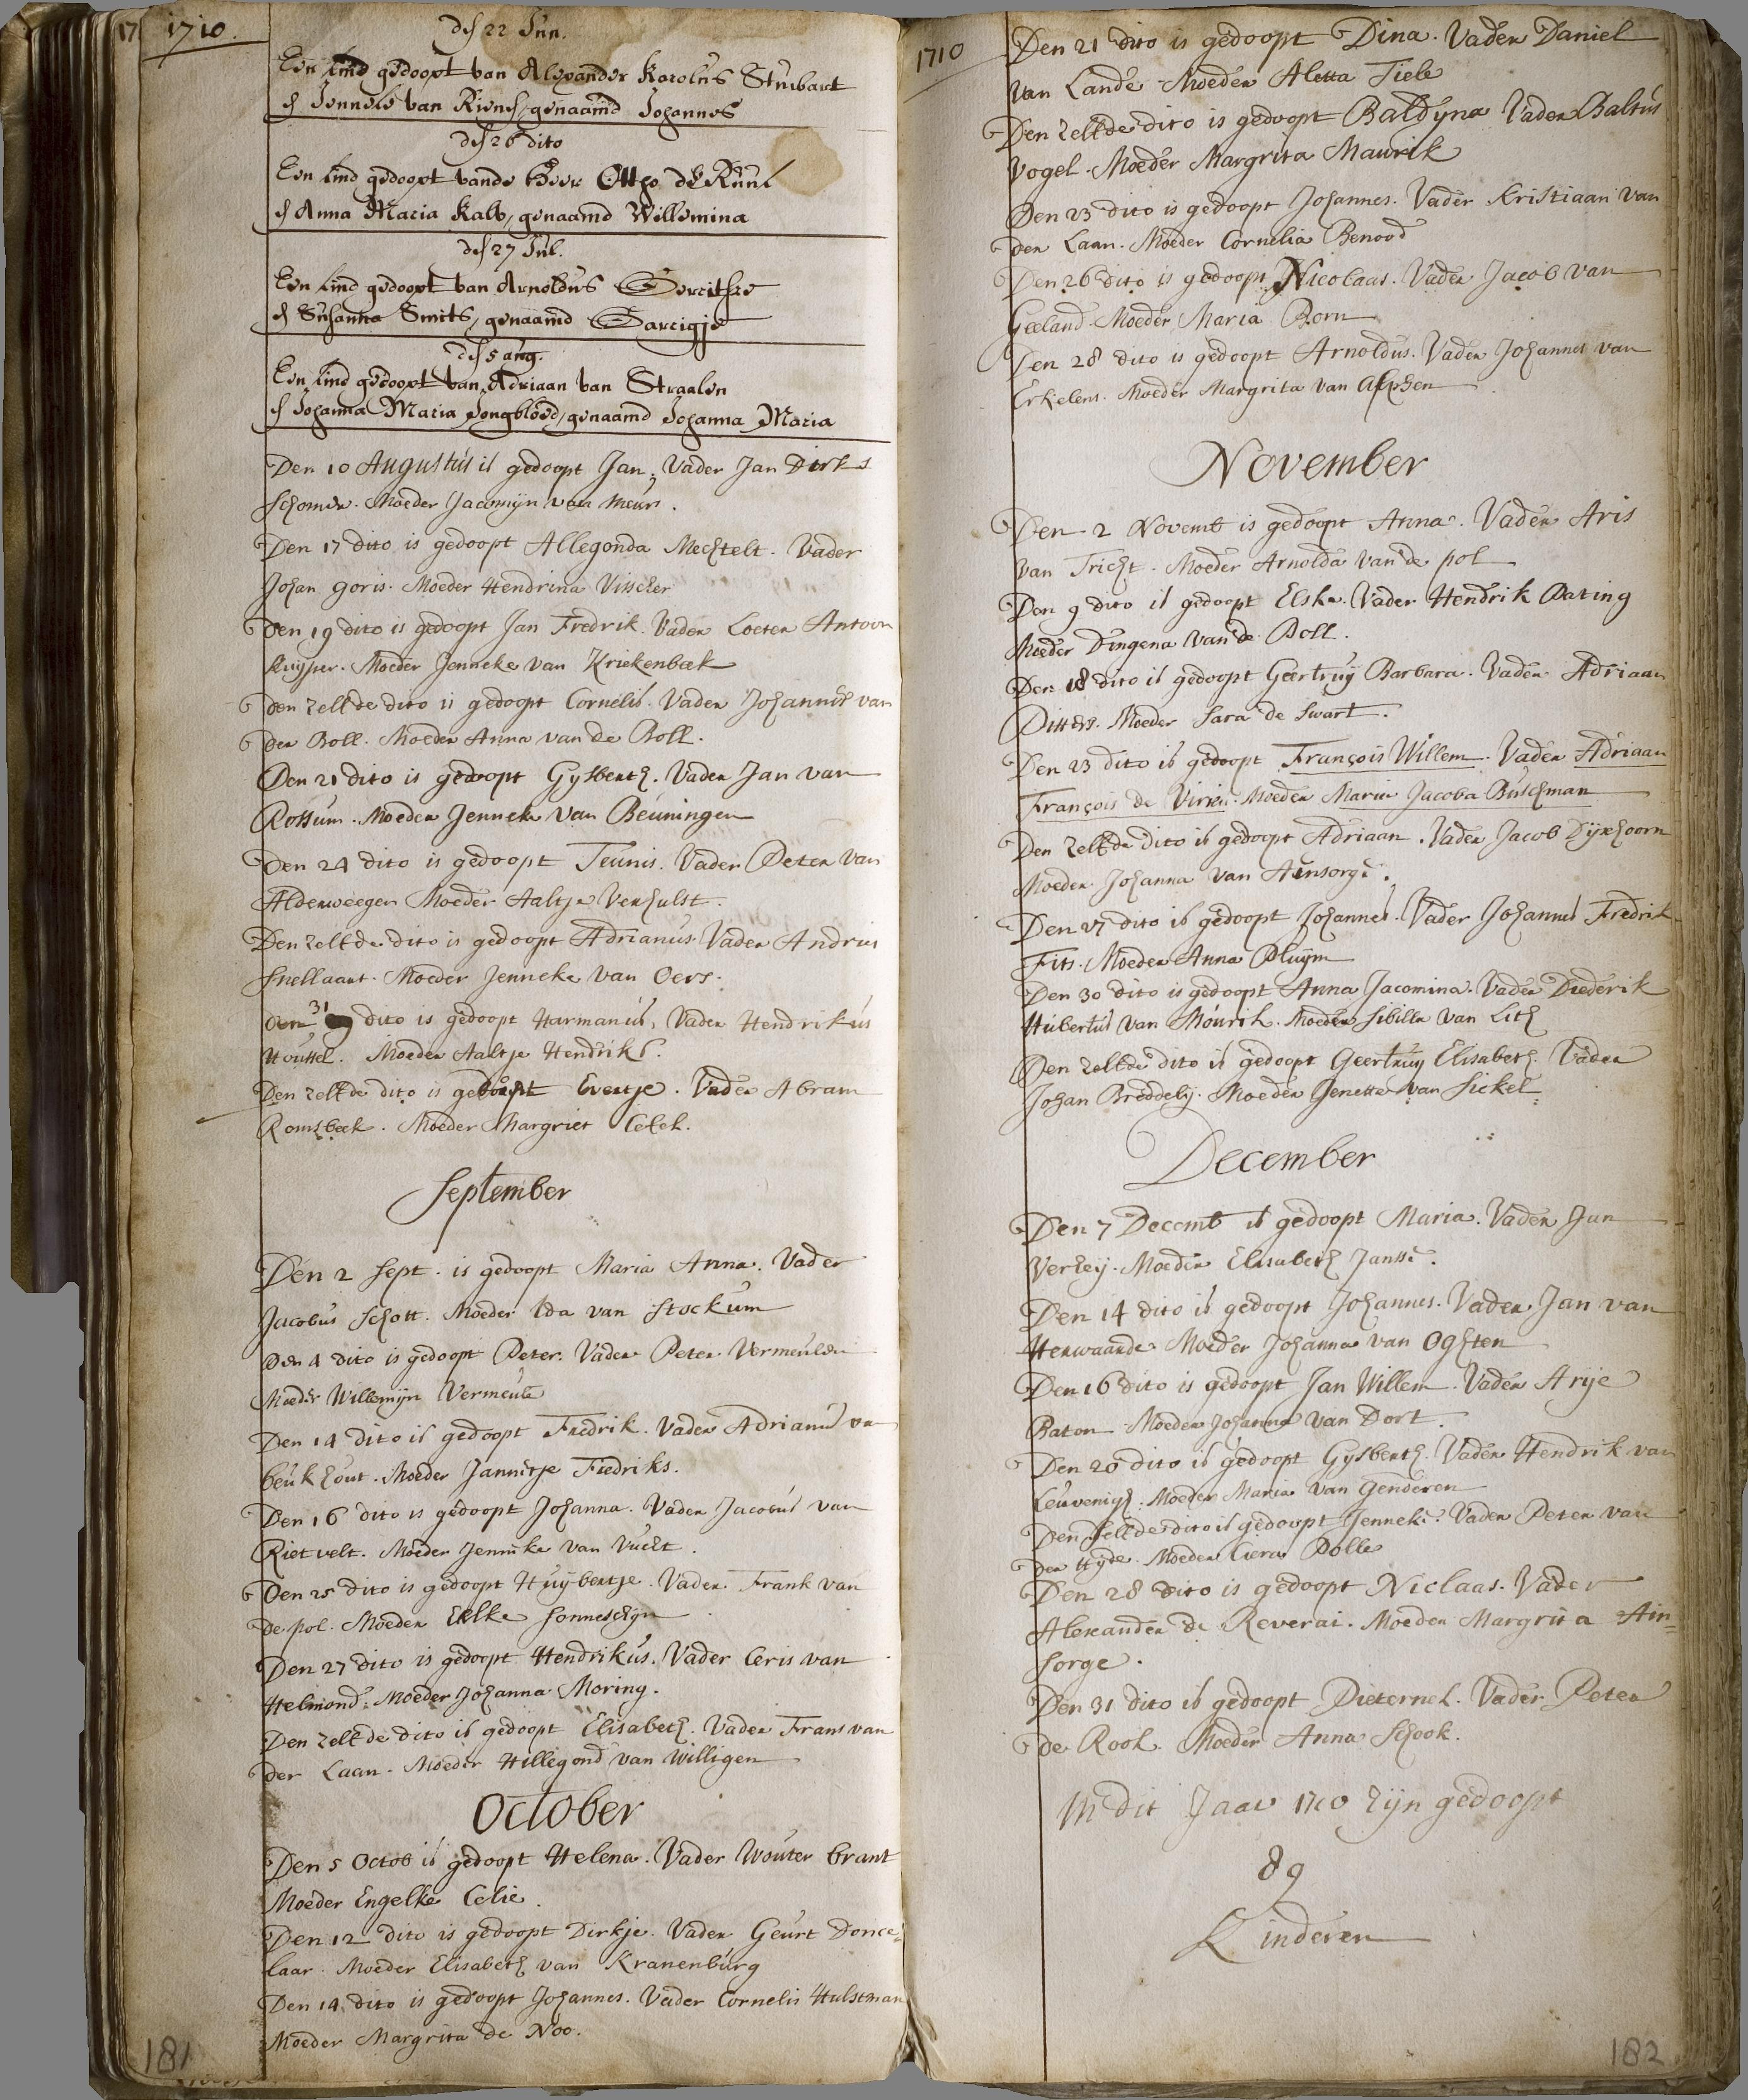 17
1710.
des 22 Jun.
Een kind gedoopt van Alexander Karolus Stubart
en Jenneke van Riens, genaamd Johannes
des 26 dito
Een kind gedoopt vande Heer Ottho de Ruul
en Anna Maria Kalb, genaamd Willemina
des 27 Jul.
Een kind gedoopt van Arnoldus Gerritsze
en Susanna Smits, genaamd Gartigje
des 5 aug.
Een kind gedoopt van Adriaan van Straalen
en Johanna Maria Jongbloed, genaamd Johanna Maria
Den 10 Augustus is gedoopt Jan. Vader Jan Dirks
Schomer. Moeder Jacomijn van Meurs.
Den 17 dito is gedoopt Allegonda Mechtelt. Vader
Johan goris. Moeder Hendrina Visscher
Den 19 dito is gedoopt Jan Fredrik. Vader Loeter Antoon
Kuyper. Moeder Jenneke van Kriekenbeek
den zelfde dito is gedoopt Cornelis. Vader Johannes van
der Boll. Moeder Anna van de Boll.
Den 21 dito is gedoopt Gysberth. Vader Jan van
Rossum. Moeder Jenneke van Beuningen
Den 24 dito is gedoopt Teunis. Vader Peter van
Aldenweegen Moeder Aaltje Verhulst.
Den zelfde dito is gedoopt Adrianus. Vader Andries
Snellaart. Moeder Jenneke van Oers.
den 31 dito is gedoopt Harmanus, Vader Hendrikus
Houssel. Moeder Aaltje Hendriks.
Den zelfde dito is gedoopt Evertje. Vader Abram
Romsbeek. Moeder Margriet
September
Den 2 Sept. is gedoopt Maria Anna. Vader
Jacobus Schott. Moeder Ida van Stockum
Den 4 dito is gedoopt Peter. Vader Peter Vermeulen
Moeder Willemijn Vermeule
Den 14 dito is gedoopt Fredrik. Vader Adrianus van
beukhout. Moeder Jannitje Fredriks.
Den 16 dito is gedoopt Johanna. Vader Jacobus van
Rietvelt. Moeder Jenneke van Vucht.
Den 25 dito is gedoopt Huijbertje. Vader Frank van
de pol. Moeder Elske Sonneschyn
Den 27 dito is gedoopt Hendrikus. Vader Ceris van
Helmond. Moeder Johanna Moring.
Den zelfde dito is gedoopt Elisabeth. Vader Frans van
der Laan. Moeder Hillegond van Willigen
October
Den 5 Octob is gedoopt Helena. Vader Wouter brant
Moeder Engelke Celie.
Den 12 dito is gedoopt Dirkje. Vader Geurt Donce-
laar. Moeder Elisabeth van Kranenburg
Den 14 dito is gedoopt Johannes. Vader Cornelis Hulstman
Moeder Margrita de Noo.
181
1710
Den 21 dito is gedoopt Dina. Vader Daniel
van Lande Moeder Aletta Tiele
Den zelfde dito is gedoopt Baldyna Vader Baltus
Vogel. Moeder Margrita Maurik
Den 23 dito is gedoopt Johannes. Vader Kristiaan van
der Laan. Moeder Cornelia Benood
Den 26 dito is gedoopt Nicolaas. Vader Jacob van
Geeland. Moeder Maria Born
Den 28 dito is gedoopt Arnoldus. Vader Johannes van
Erkelens. Moeder Margrita van Alphen
November
Den 2 Novemb is gedoopt Anna. Vader Aris
van Tricht. Moeder Arnolda van de pol
Den 9 dito is gedoopt Elske. Vader Hendrik Pating
Moeder Dingena van de Boll.
Den 18 dito is gedoopt Geertruy Barbara. Vader Adriaan
Ditters. Moeder Sara de Swart.
Den 23 dito is gedoopt François Willem. Vader Adriaan
François de Virieu. Moeder Maria Jacoba Buschman
Den zelfde dito is gedoopt Adriaan. Vader Jacob Dijxhoorn
Moeder Johanna van Ainsorge.
Den 27 dito is gedoopt Johannes. Vader Johannes Fredrik
Fits. Moeder Anna Pluym
Den 30 dito is gedoopt Anna Jacomina. Vader Diederik
Hubertus van Mourik. Moeder Sibilla van Lith
Den zelfde dito is gedoopt Geertruy Elisabeth. Vader
Johan Breddelij. Moeder Jenette van Sickel
December
Den 7 Decemb is gedoopt Maria. Vader Jan
Verheij. Moeder Elisabeth Janssе.
Den 14 dito is gedoopt Johannes. Vader Jan van
Herwaarde Moeder Johanna van Oghten
Den 16 dito is gedoopt Jan Willem. Vader Arije
Baton Moeder Johanna van Dort.
Den 20 dito is gedoopt Gysberth. Vader Hendrik van
Leuvenigh. Moeder Maria van Genderen
Den Selfde dito is gedoopt Jenneke. Vader Peter van
der Hyde. Moeder Cera Polle
Den 28 dito is gedoopt Niclaas. Vader
Alexander de Reverai. Moeder Margrita Ain-
sorge.
Den 31 dito is gedoopt Pieternel. Vader Peter
de Rook. Moeder Anna Schook.
In dit Jaar 1710 zijn gedoopt
89
Kinderen
182